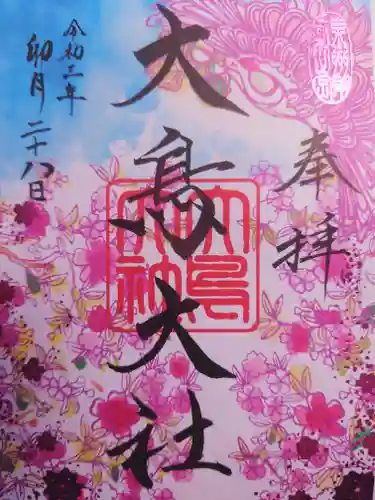 奉拝
大鳥大社
大鳥大社
令和二年
卯月二十八日